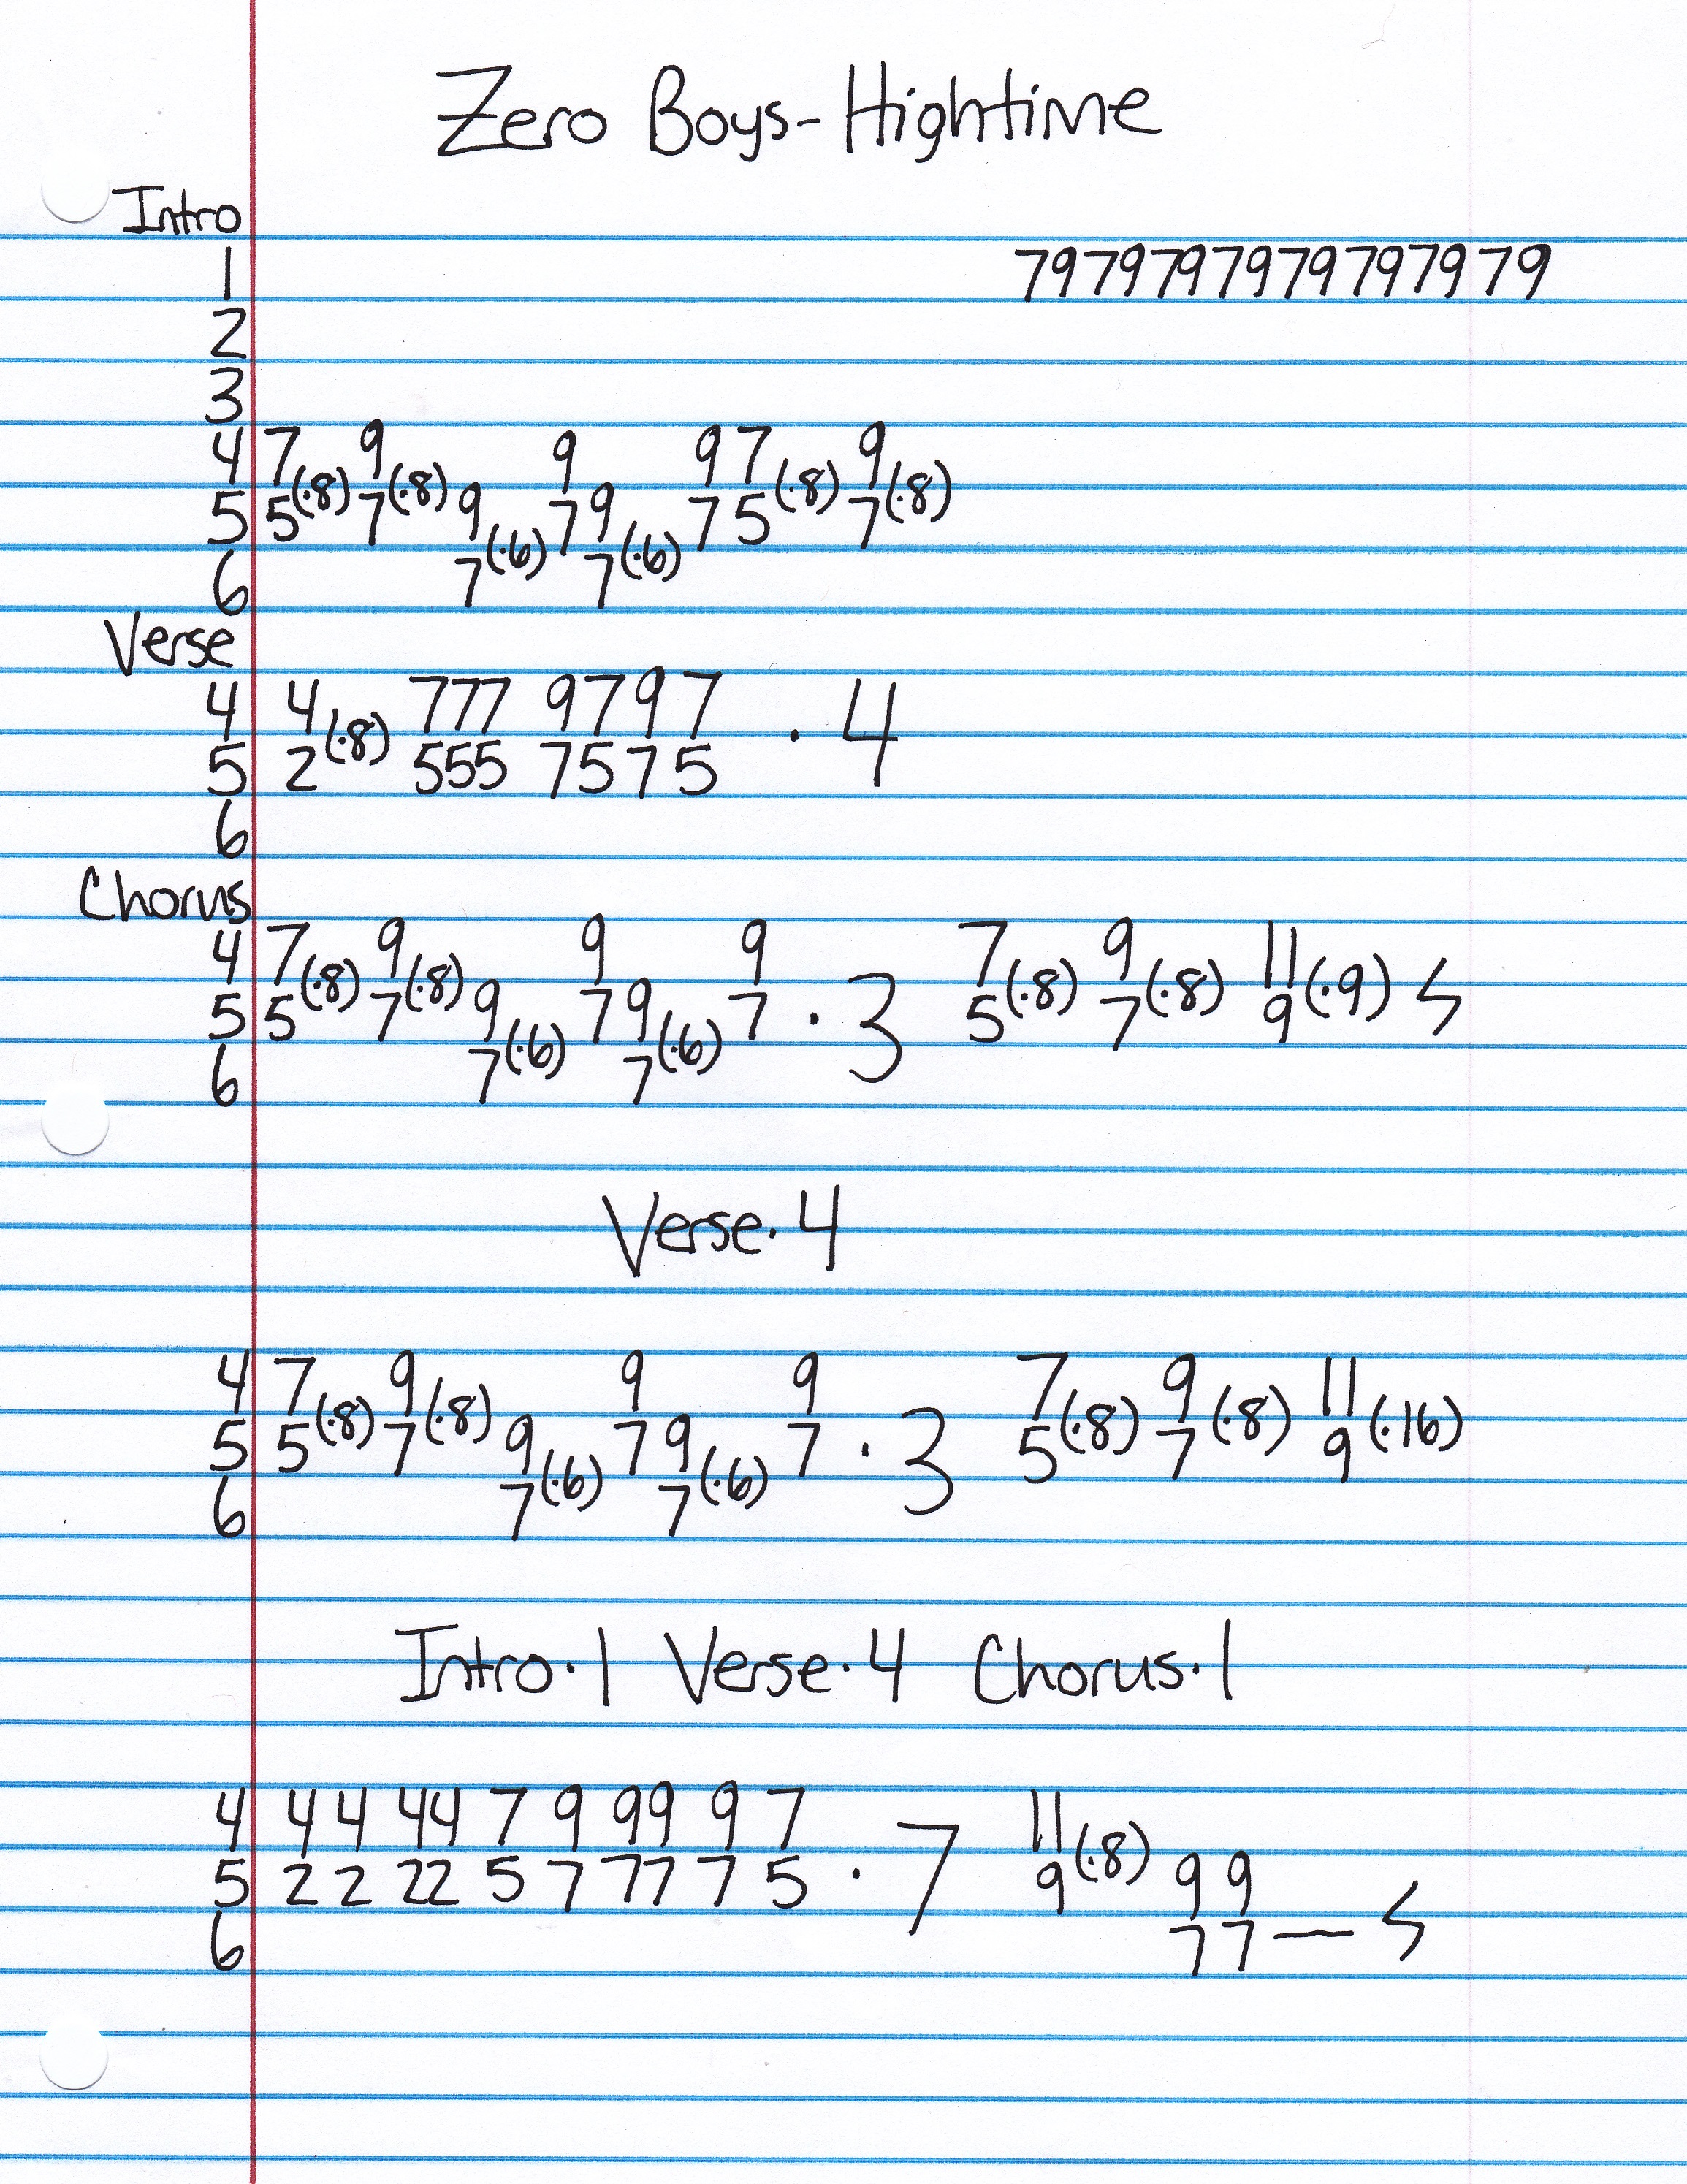 Zero Boys-Hightime
Intro
1 7979797979797979
2
3
4 7 9 9 9 7 9
5 5(·8) 7(·8) 9 7 9 7 5(·8) 7(·8)
6 7(·6) 7(·6)
Verse
4 4 777 9797 · 4
5 2(·8) 555 7575
6
Chorus
4 7 9 9 9 7 9 11
5 5(·8) 7(·8) 9 7 9 7 · 3 5(·8) 7(·8) 9(·9) ϟ
6 7(·6) 7(·6)
Verse·4
4 7 9 9 9 7 9 11
5 5(·8) 7(·8) 9 7 9 7 · 3 5(·8) 7(·8) 9(·16)
6 7(·6) 7(·6)
Intro·1 Verse·4 Chorus·1
4 4 4 44 7 9 99 9 7 11
5 2 2 22 5 7 77 7 5 · 7 9(·8) 9 9
6 7 7 — ϟ